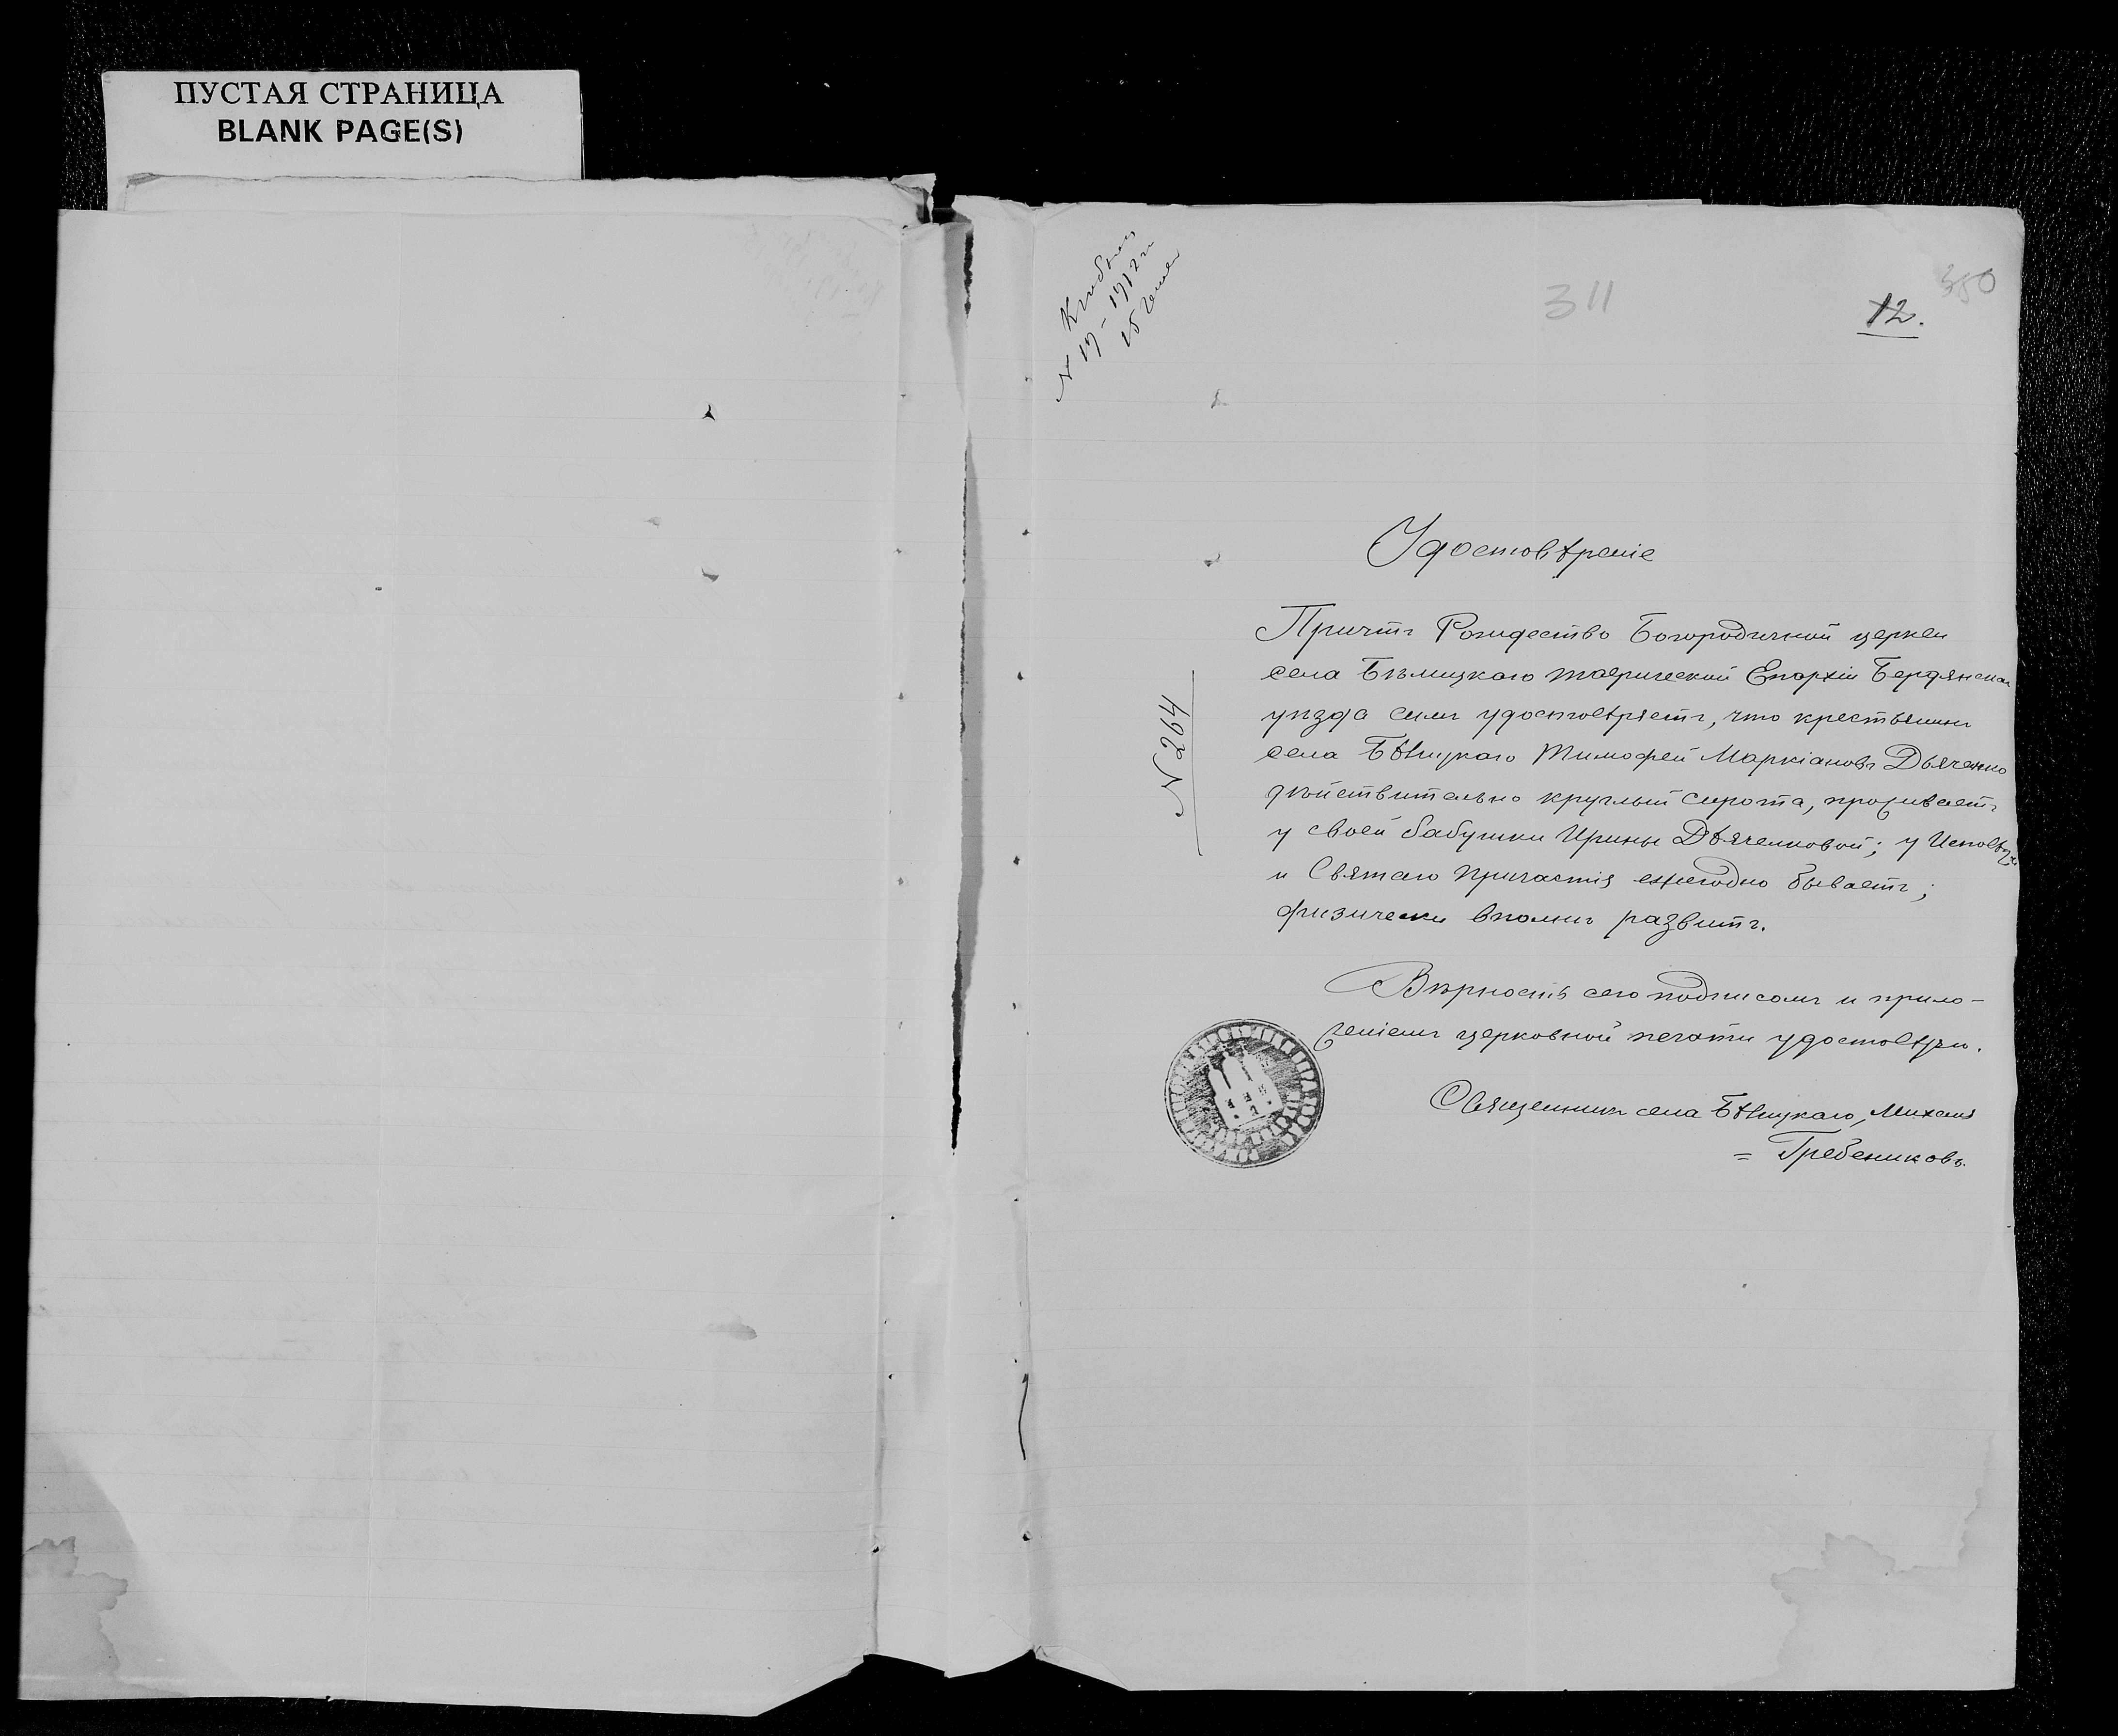 ПУСТАЯ СТРАНИЦА
BLANK PAGE(S)
N 17 - 1912 г
311
12.
350
N 264
Удостовѣреніе
Причтъ Рождество Богородичной церкви
села Бѣлицкаго Таврической Епархіи Бердянскаго
уѣзда симъ удостовѣряетъ, что крестьянинъ
села Бѣлицкаго Тимофей Маркіановъ Дьяченко
дѣйствительно круглый сирота, проживаетъ
у своей бабушки Ирины Дьяченковой; у Исповѣди
и Святаго Причастія ежегодно бываетъ;
физически вполнѣ развитъ.
Вѣрность сего подписомъ и прило-
женіемъ церковной печати удостовѣряю.
Священникъ села Бѣлицкаго, Михаилъ
= Гребениковъ.